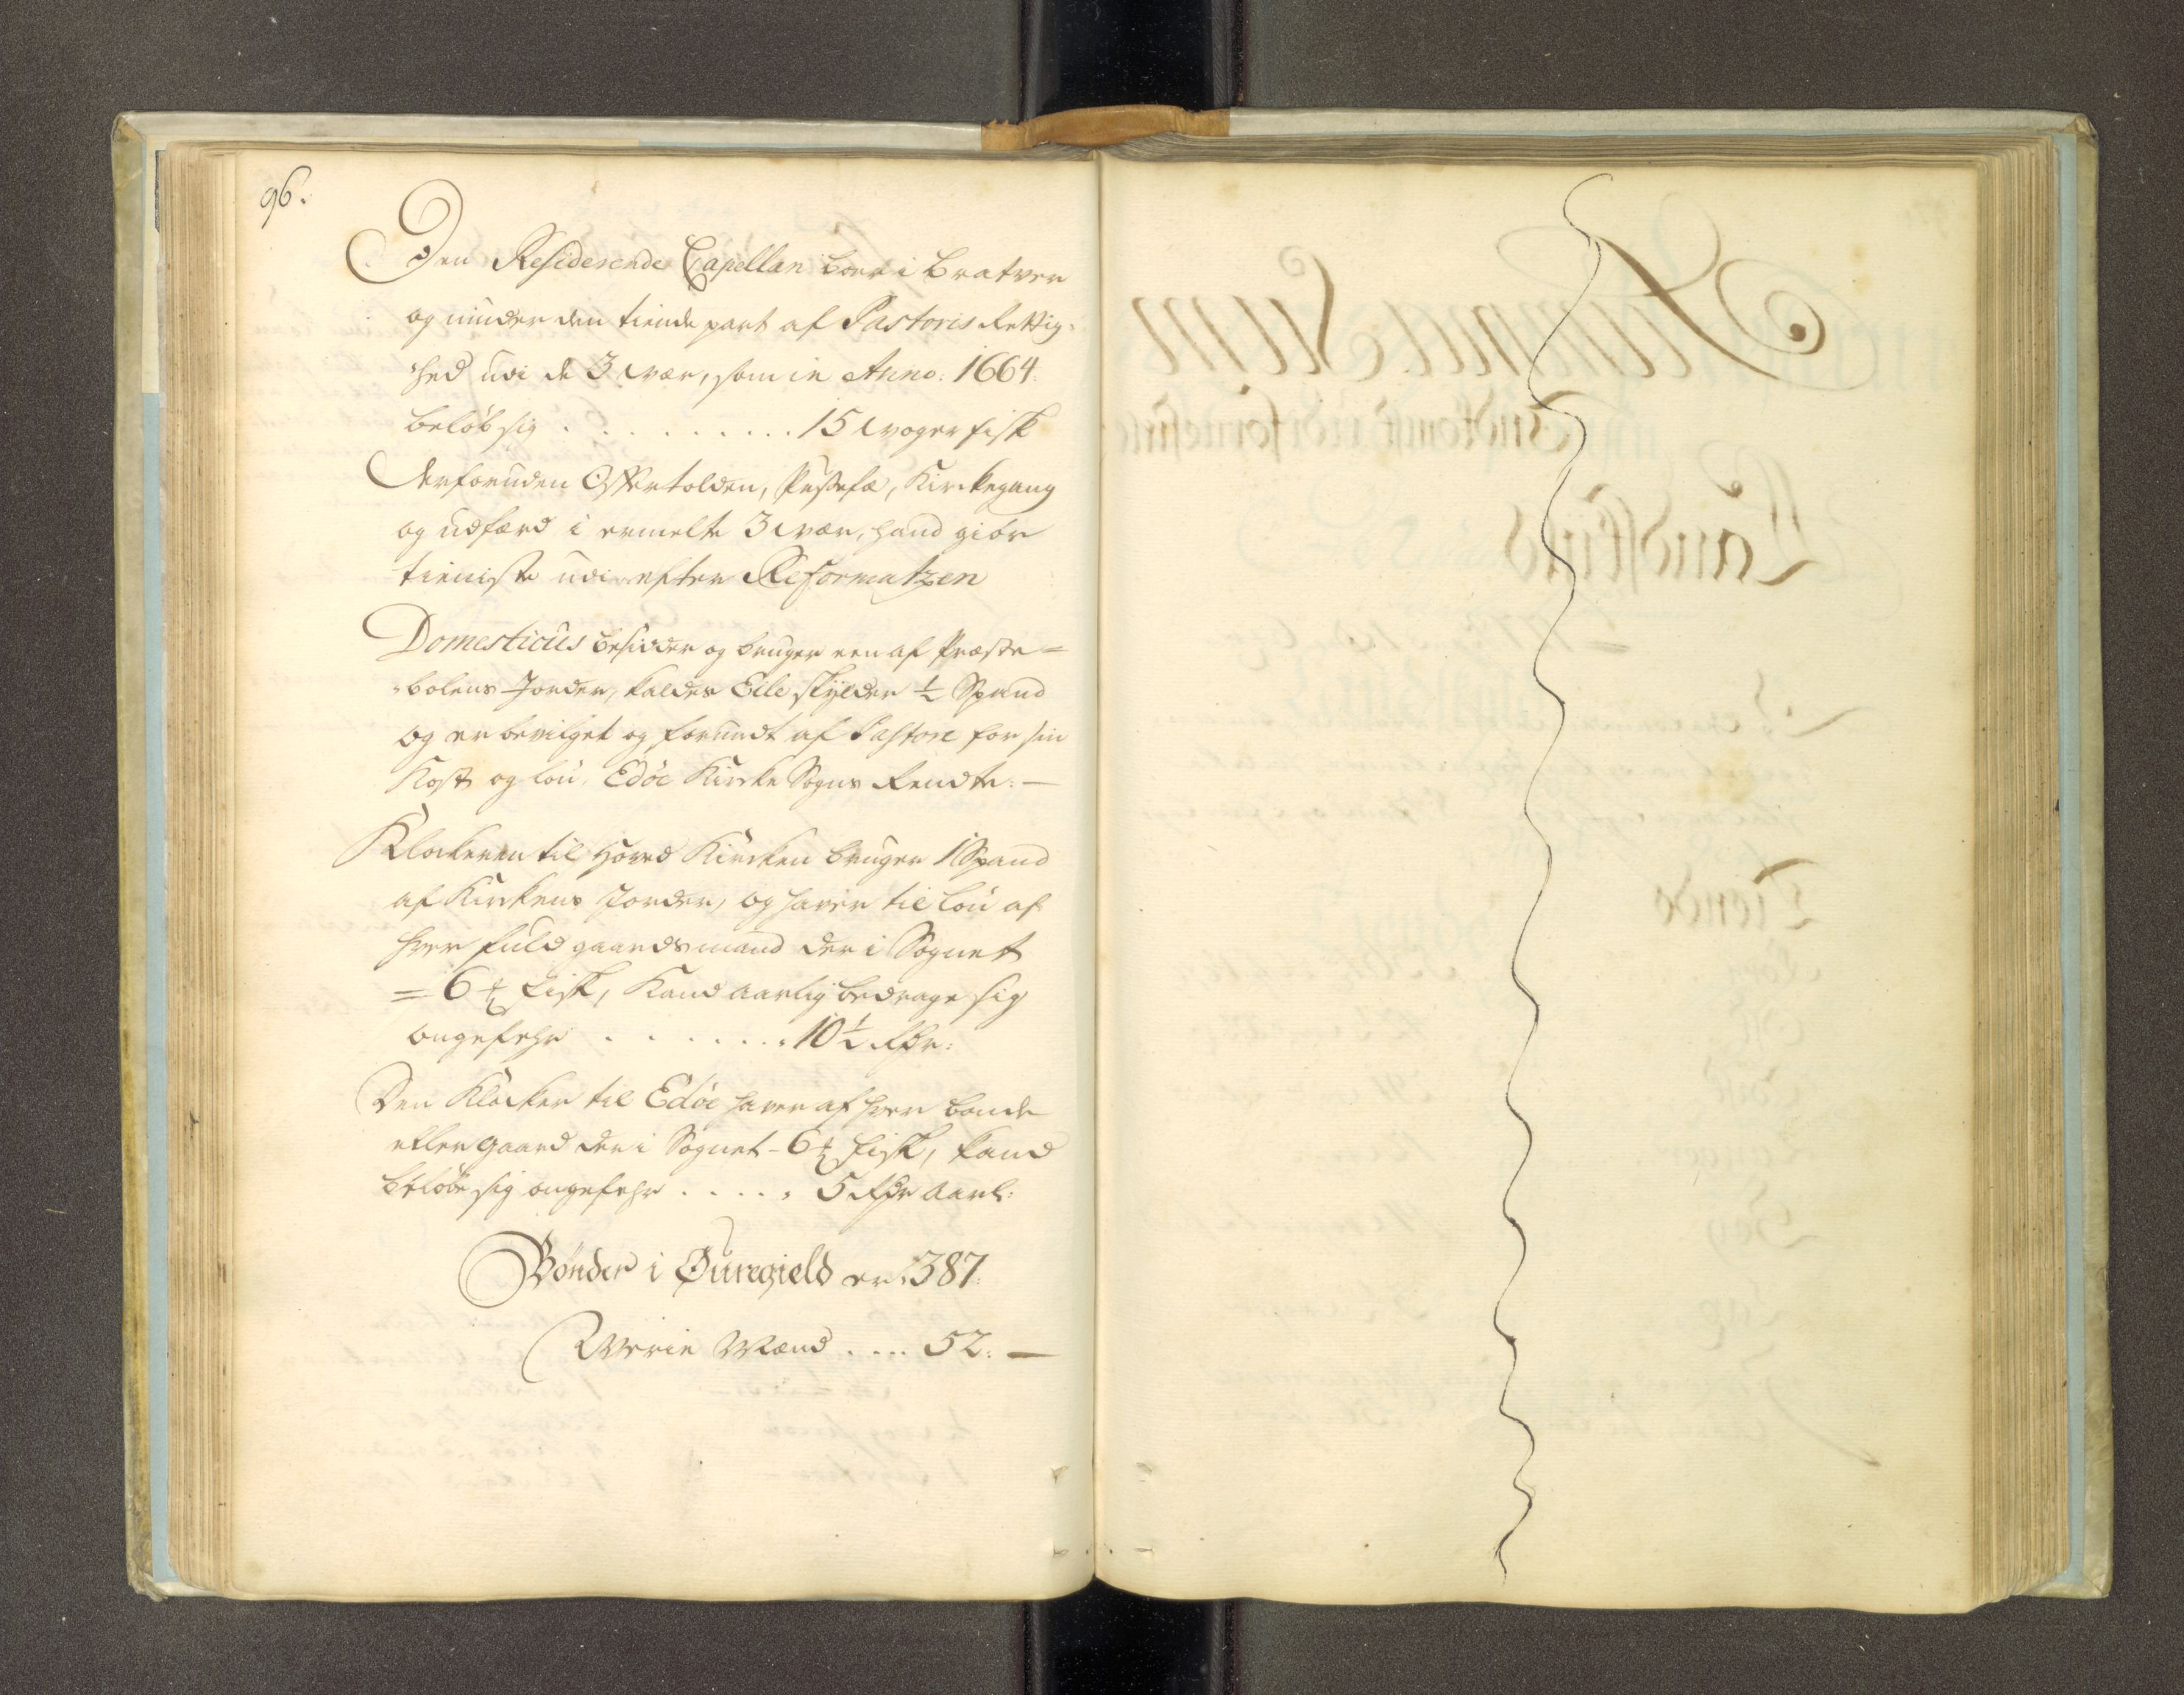 96.
Den Residerende Capellan boer i Bratver
og nÿder den tiende part af Pastoris Rettig-
hed udi de 3 wær, som in Anno: 1664.
beløb sig . . . . . . . . . . 15 woger fisk
Derforuden Offertolden, Kirckegang
og udfærd i ermelte 3 wær, hand giör
tieniste udi efter Reformatzen
Domesticus besidder og bruger een af Præste-
bolens Jorder, kaldes Eile skylder ½ Spand
og er bevilget og forundt af Pastore for sin
Kost og lön, Edöe Kircke Sogns Rendte: —
Klockeren til Hoved Kircken bruger 1 Spand
af Kirckens Jorder, og haver til lön af
hver fuld gaardsmand der i Sognet
= 6 ℔ fisk, Kand aarlig bedrage sig
ongefehr . . . . . . . 10½ Rdr:
Den Klocker til Edöe haver af hver bonde
eller gaard der i Sognet - 6 ℔ fisk, kand
beløbe sig ongefehr . . . . . 5 Rdr aarl:
Bönder i Öuregield er: 387.
Qverne Mænd . . . . 52. —